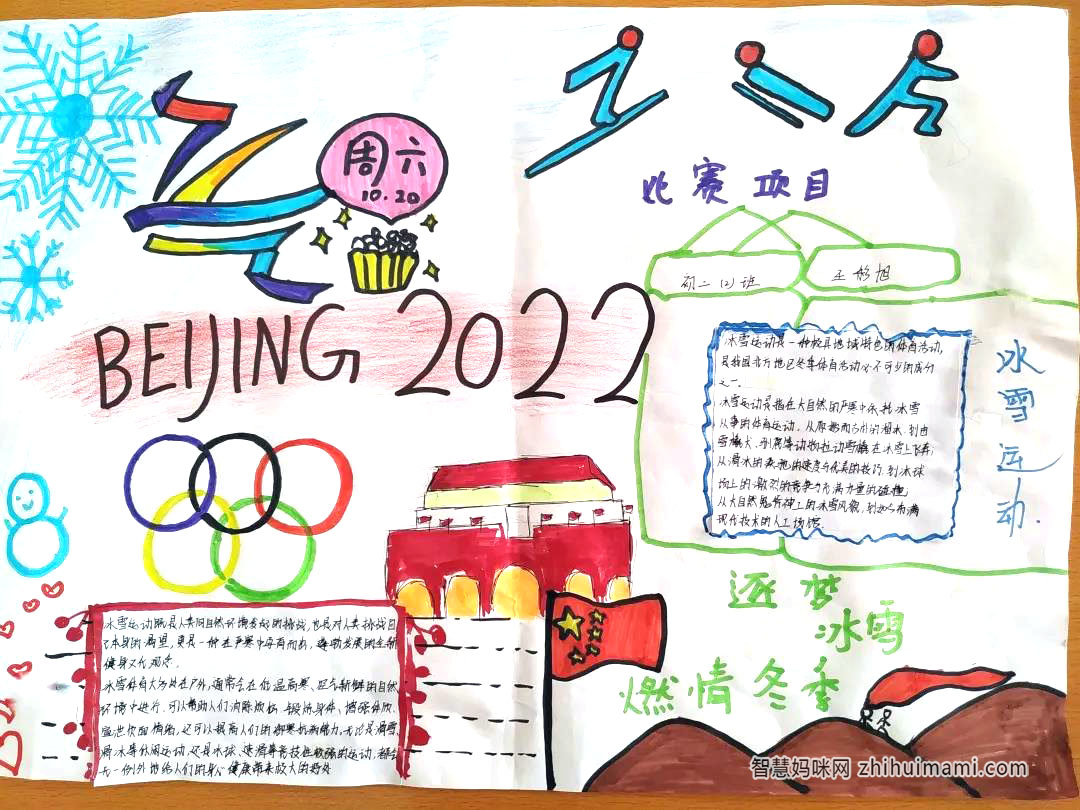 周六
10.20
比赛项目
初二(2)班
BEIJING 2022
冰雪运动
冰雪运动是一种极具地域特色的体育活动,
是我国北方地区冬季体育活动必不可少的成分
之一.
冰雪运动是指在大自然的严寒中依托冰雪
从事的体育运动,从
雪 在冰雪上飞奔;
从滑冰的 的速度与优美的技巧,到冰球
场上的激烈的竞争与充满力量的碰撞,
从大自然鬼斧神工的冰雪风貌,到如今布满
现代技术的人工场馆
逐梦
冰雪
燃情冬季
冰雪运动既是人类向自然环境发起的挑战,也是对人类挑战自
本身的渴望,更是一种在严寒中孕育而出,蓬勃发展的全新
健身文化观念.
冰雪体育大多处在户外,通常会在低温高寒、空气新鲜的自然
环境中进行,可以帮助人们消除疲劳、锻炼身体、增强体质、
情绪,还可以提高人们的御寒抗病能力,无论是滑雪、
滑冰等休闲运动,还是冰球、速滑等竞技性较强的运动,都会
无一例外地给人们的身心健康带来极大的好处
智慧妈咪网 zhihuimami.com